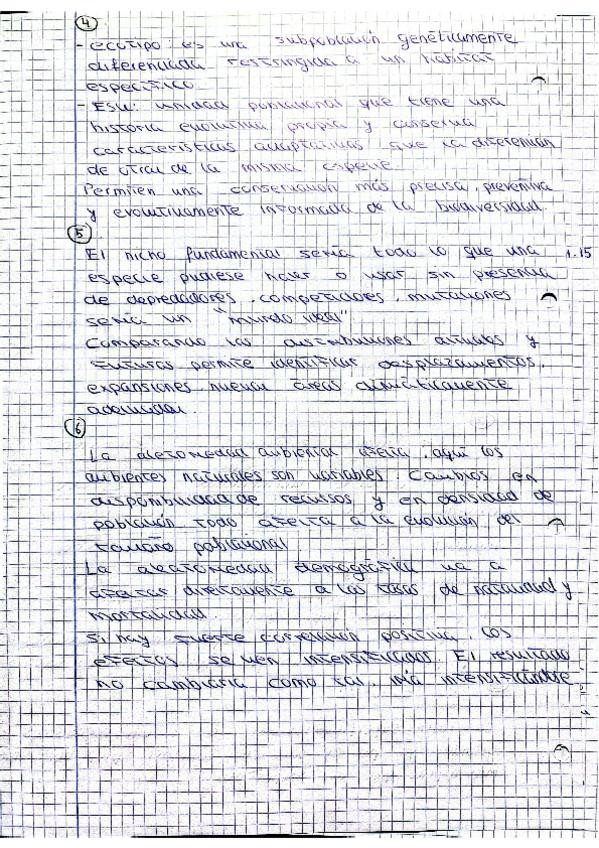 4
- ecotipo: es una subpoblación genéticamente
diferenciada restringida a un hábitat
específico
- ESU: unidad poblacional que tiene una
historia evolutiva propia y conserva
características adaptativas que la diferencian
de otras de la misma especie.
Permiten una conservación más precisa, preventiva
y evolutivamente informada de la biodiversidad.
5
El nicho fundamental sería todo lo que una 1.15
especie pudiese hacer o usar sin presencia
de depredadores, competidores, mutaciones
sería un "mundo ideal"
Comparando las distribuciones actuales y
futuras permite identificar desplazamientos,
expansiones, nuevas áreas climáticamente
adecuadas.
6
La aleatoriedad ambiental afecta, aquí los
ambientes naturales son variables. Cambios en
disponibilidad de recursos y en densidad de
población todo afecta a la evolución del
tamaño poblacional
La aleatoriedad demográfica va a
afectar directamente a las tasas de natalidad y
mortalidad.
Si hay fuerte correlación positiva, los
efectos se ven intensificados. El resultado
no cambiaría como tal, iría intensificándose